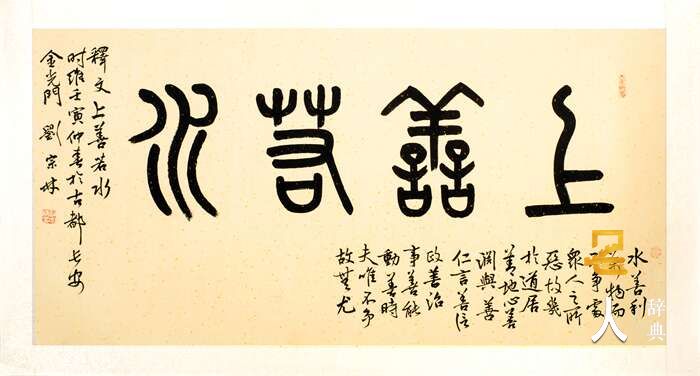 上善若水
水善利
物而
争處
衆人之所
惡故幾
於道居
善地心善
淵與善
仁言善信
政善治
事善能
動善時
夫唯不争
故無尤
釋文上善若水
时维壬寅仲春於古都长安
金光門 劉宗林
人 辞典